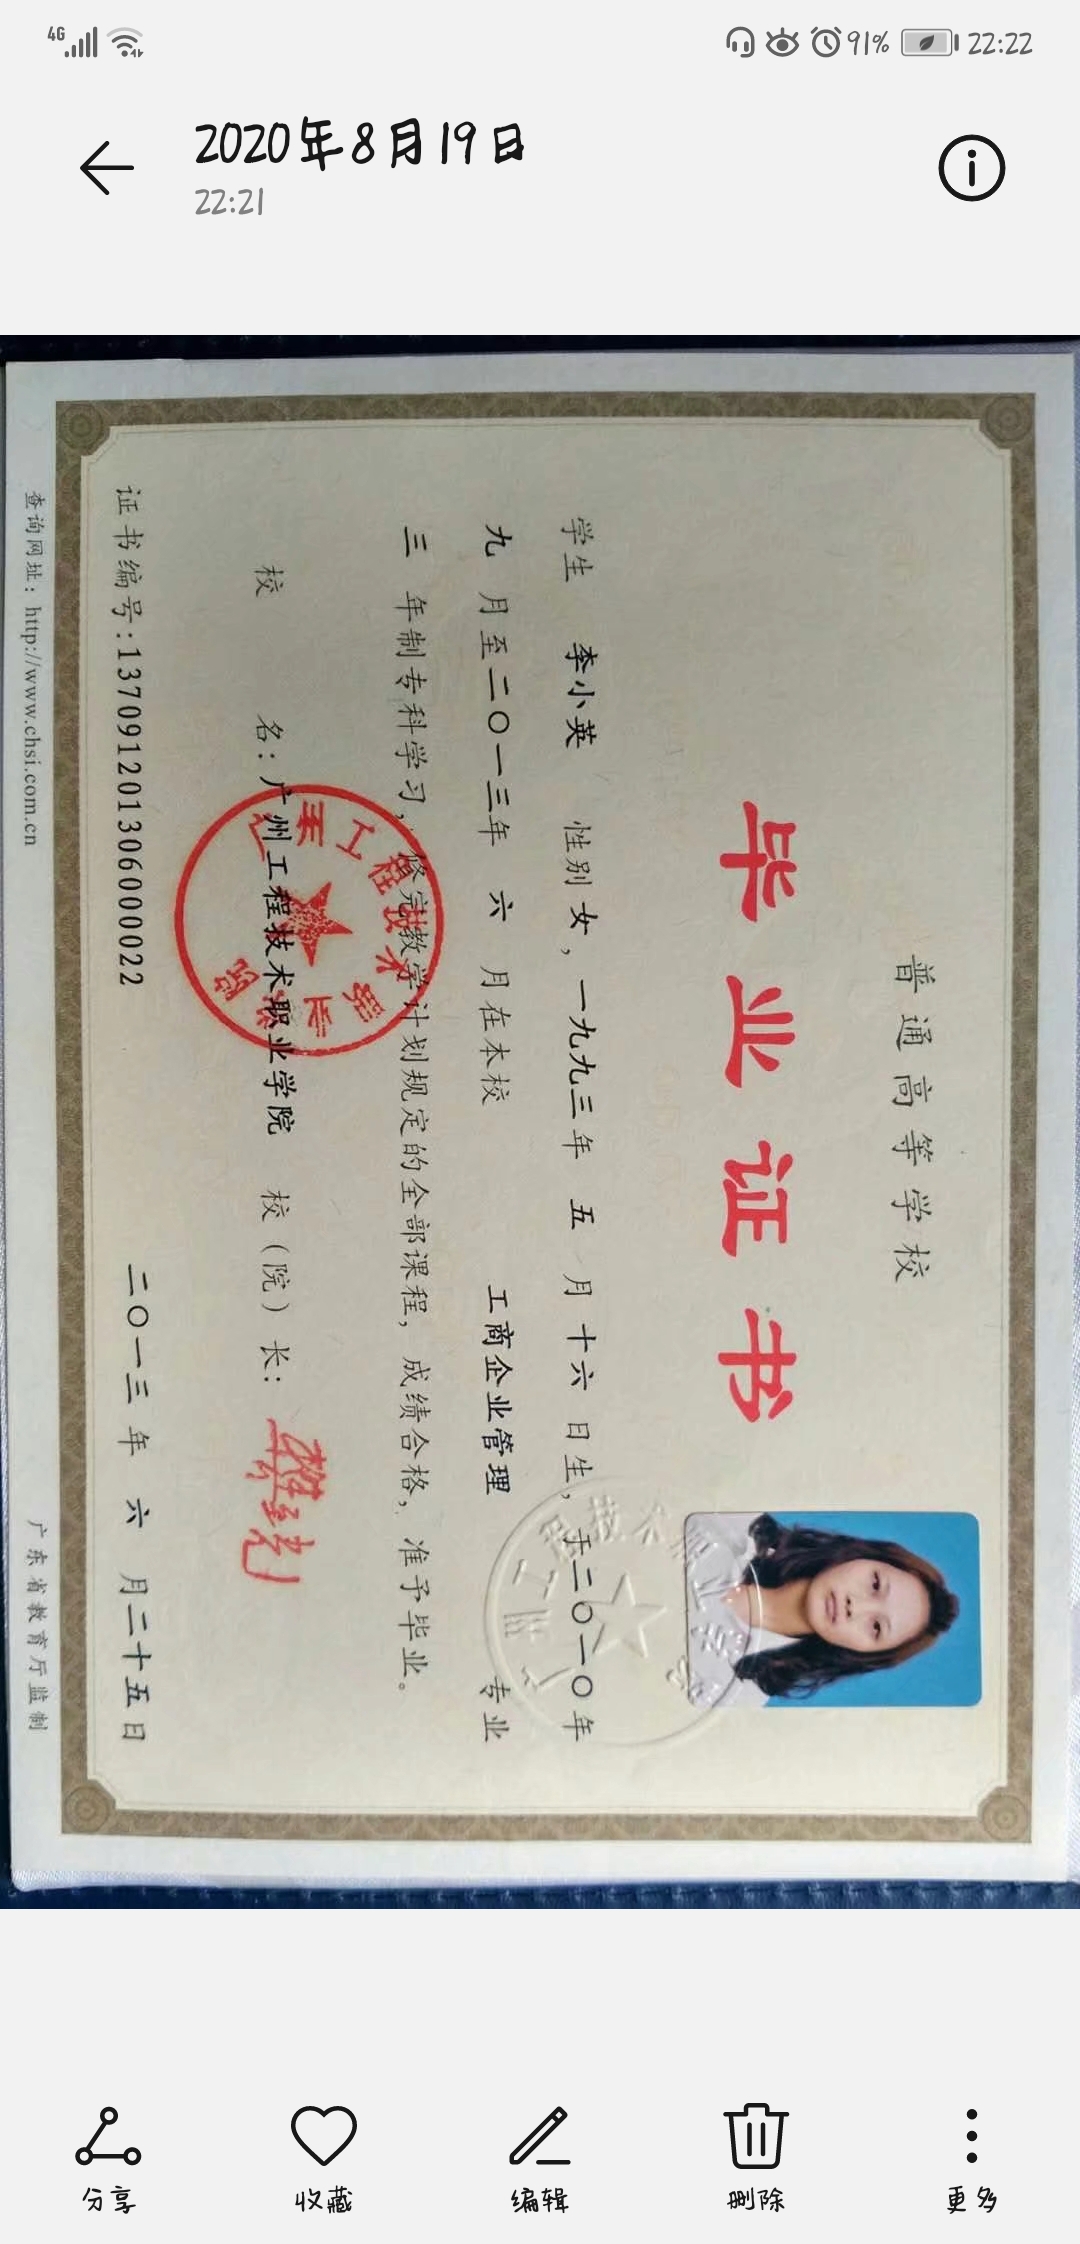 4G
91%
22:22
2020年8月19日
22:21
普通高等学校
毕业证书
学生 李小英 性别 女，一九九三年 五 月 十六 日生，于二〇一〇年
九 月至二〇一三年 六 月在本校 工商企业管理 专业
三 年制专科学习，修完教学计划规定的全部课程，成绩合格，准予毕业。
校 名：广州工程技术职业学院 校（院）长：
证书编号：137091201306000022 二〇一三 年 六 月二十五日
查询网址：http://www.chsi.com.cn 广东省教育厅监制
分享
收藏
编辑
删除
更多